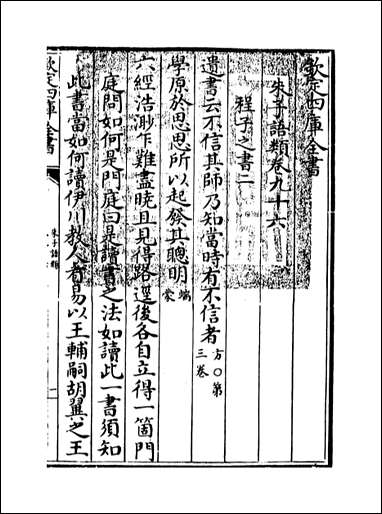 欽定四庫全書
朱子語類卷九十六
程子之書二
遺書云不信其師乃知當時有不信者方○第三卷
學原於思思所以起發其聰明端蒙
六經浩渺乍難盡曉且見得路逕後各自立得一箇門
庭問如何是門庭曰是讀書之法如讀此一書須知
此書當如何讀伊川教人看易以王輔嗣胡翼之王
欽定四庫全書
朱子語類